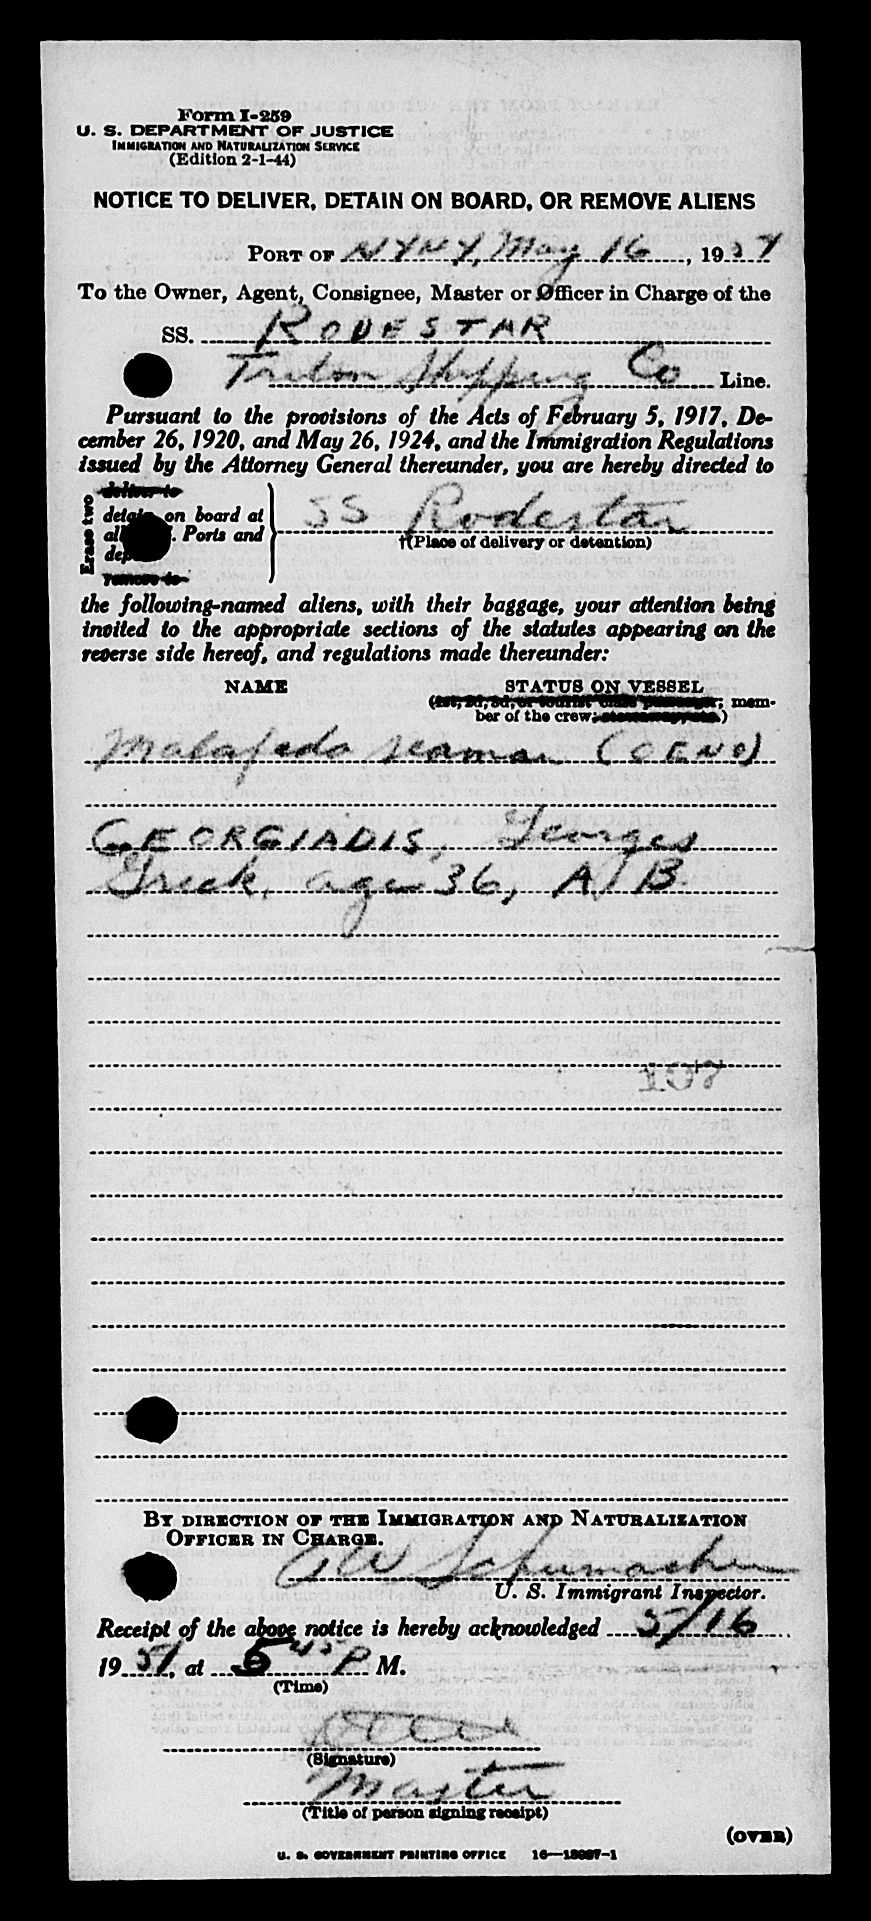 Form I-259
U. S. DEPARTMENT OF JUSTICE
IMMIGRATION AND NATURALIZATION SERVICE
(Edition 2-1-44)
NOTICE TO DELIVER, DETAIN ON BOARD, OR REMOVE ALIENS
PORT OF NYNY, May 16, 19
To the Owner, Agent, Consignee, Master or Officer in Charge of the
SS. RODESTAR
Triton Shipping Co Line.
Pursuant to the provisions of the Acts of February 5, 1917, De-
cember 26, 1920, and May 26, 1924, and the Immigration Regulations
issued by the Attorney General thereunder, you are hereby directed to
Erase two
deliver to
detain on board at
all . Ports and
SS Rodestar
†(Place of delivery or detention)
remove to
the following-named aliens, with their baggage, your attention being
invited to the appropriate sections of the statutes appearing on the
reverse side hereof, and regulations made thereunder:
NAME STATUS ON VESSEL
(1st, 2d, 3d, or tourist class passenger; mem-
ber of the crew; )
Malafeda Seaman
GEORGIADIS, Georges
Greek, age 36, A/B
107
BY DIRECTION OF THE IMMIGRATION AND NATURALIZATION
OFFICER IN CHARGE.
Schumacher
U. S. Immigrant Inspector.
Receipt of the above notice is hereby acknowledged 5/16
1951, at 5 45 P M.
(Time)
(Signature)
Master
(Title of person signing receipt)
(OVER)
U. S. GOVERNMENT PRINTING OFFICE